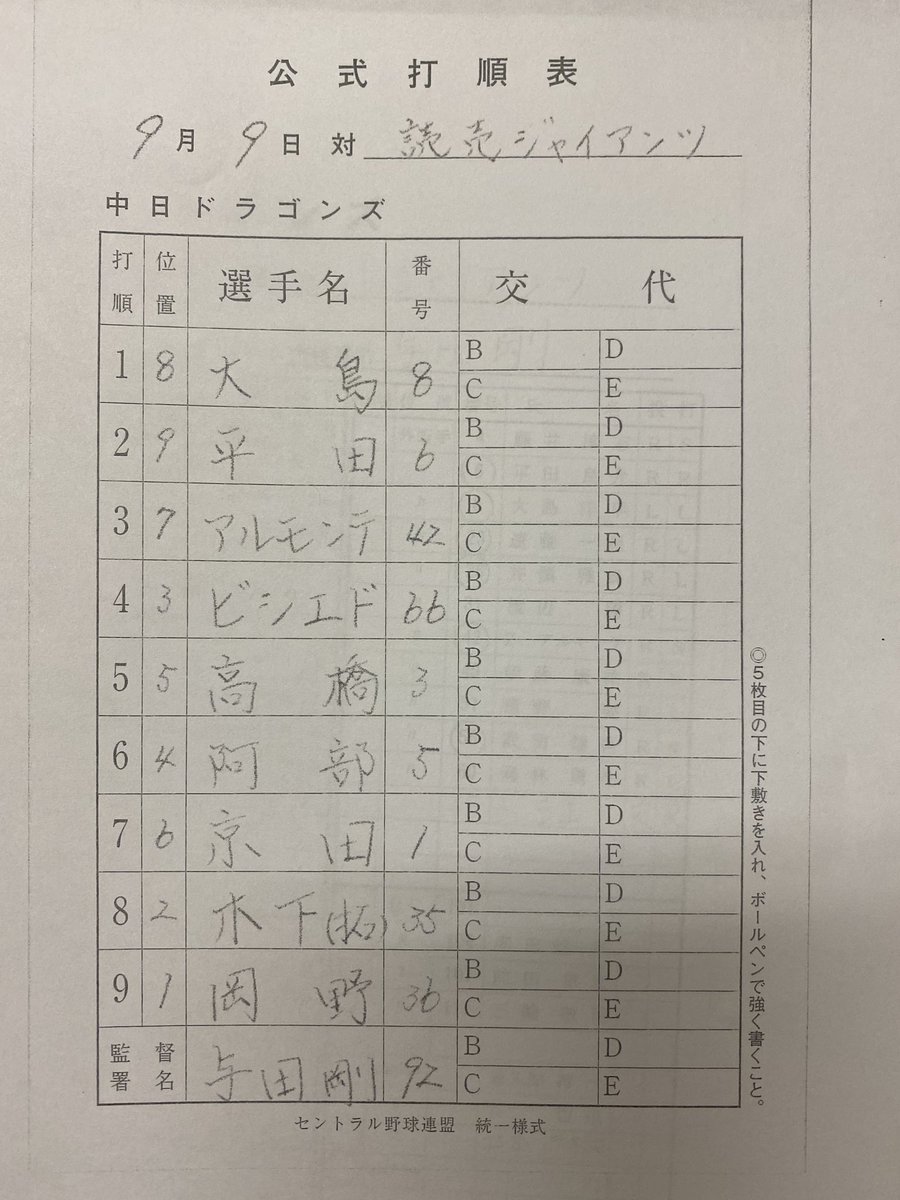 公式打順表
9月9日対 読売ジャイアンツ
中日ドラゴンズ
打順 位置 選手名 番号 交代
1 8 大島 8 B D
C E
2 9 平田 6 B D
C E
3 7 アルモンテ 42 B D
C E
4 3 ビシエド 66 B D
C E
5 5 高橋 3 B D
C E
6 4 阿部 5 B D
C E
7 6 京田 1 B D
C E
8 2 木下(拓) 35 B D
C E
9 1 岡野 36 B D
C E
監督署名 与田剛 92 B D
C E
セントラル野球連盟 統一様式
◎5枚目の下に下敷きを入れ、ボールペンで強く書くこと。